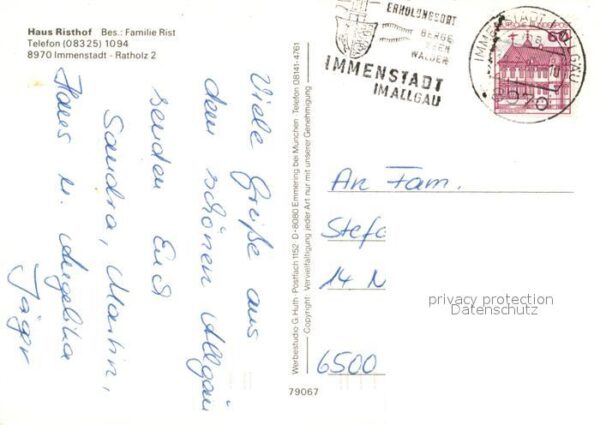 Haus Risthof Bes.: Familie Rist
Telefon (08325) 1094
8970 Immenstadt - Ratholz 2
Viele Grüße aus
dem schönen Allgäu
senden Euch
Sandra, Martin,
Hans u. Angelika
Jäger
Werbestudio G. Huth · Postfach 1152 · D-8080 Emmering bei München · Telefon 08141-4761
Copyright · Vervielfältigung jeder Art nur mit unserer Genehmigung
79067
ERHOLUNGSORT
BERGE
SEEN
WÄLDER
IMMENSTADT
IM ALLGÄU
IMMENSTADT I. ALLGÄU
8970
60
An Fam.
Stefa
14 N
6500
privacy protection
Datenschutz